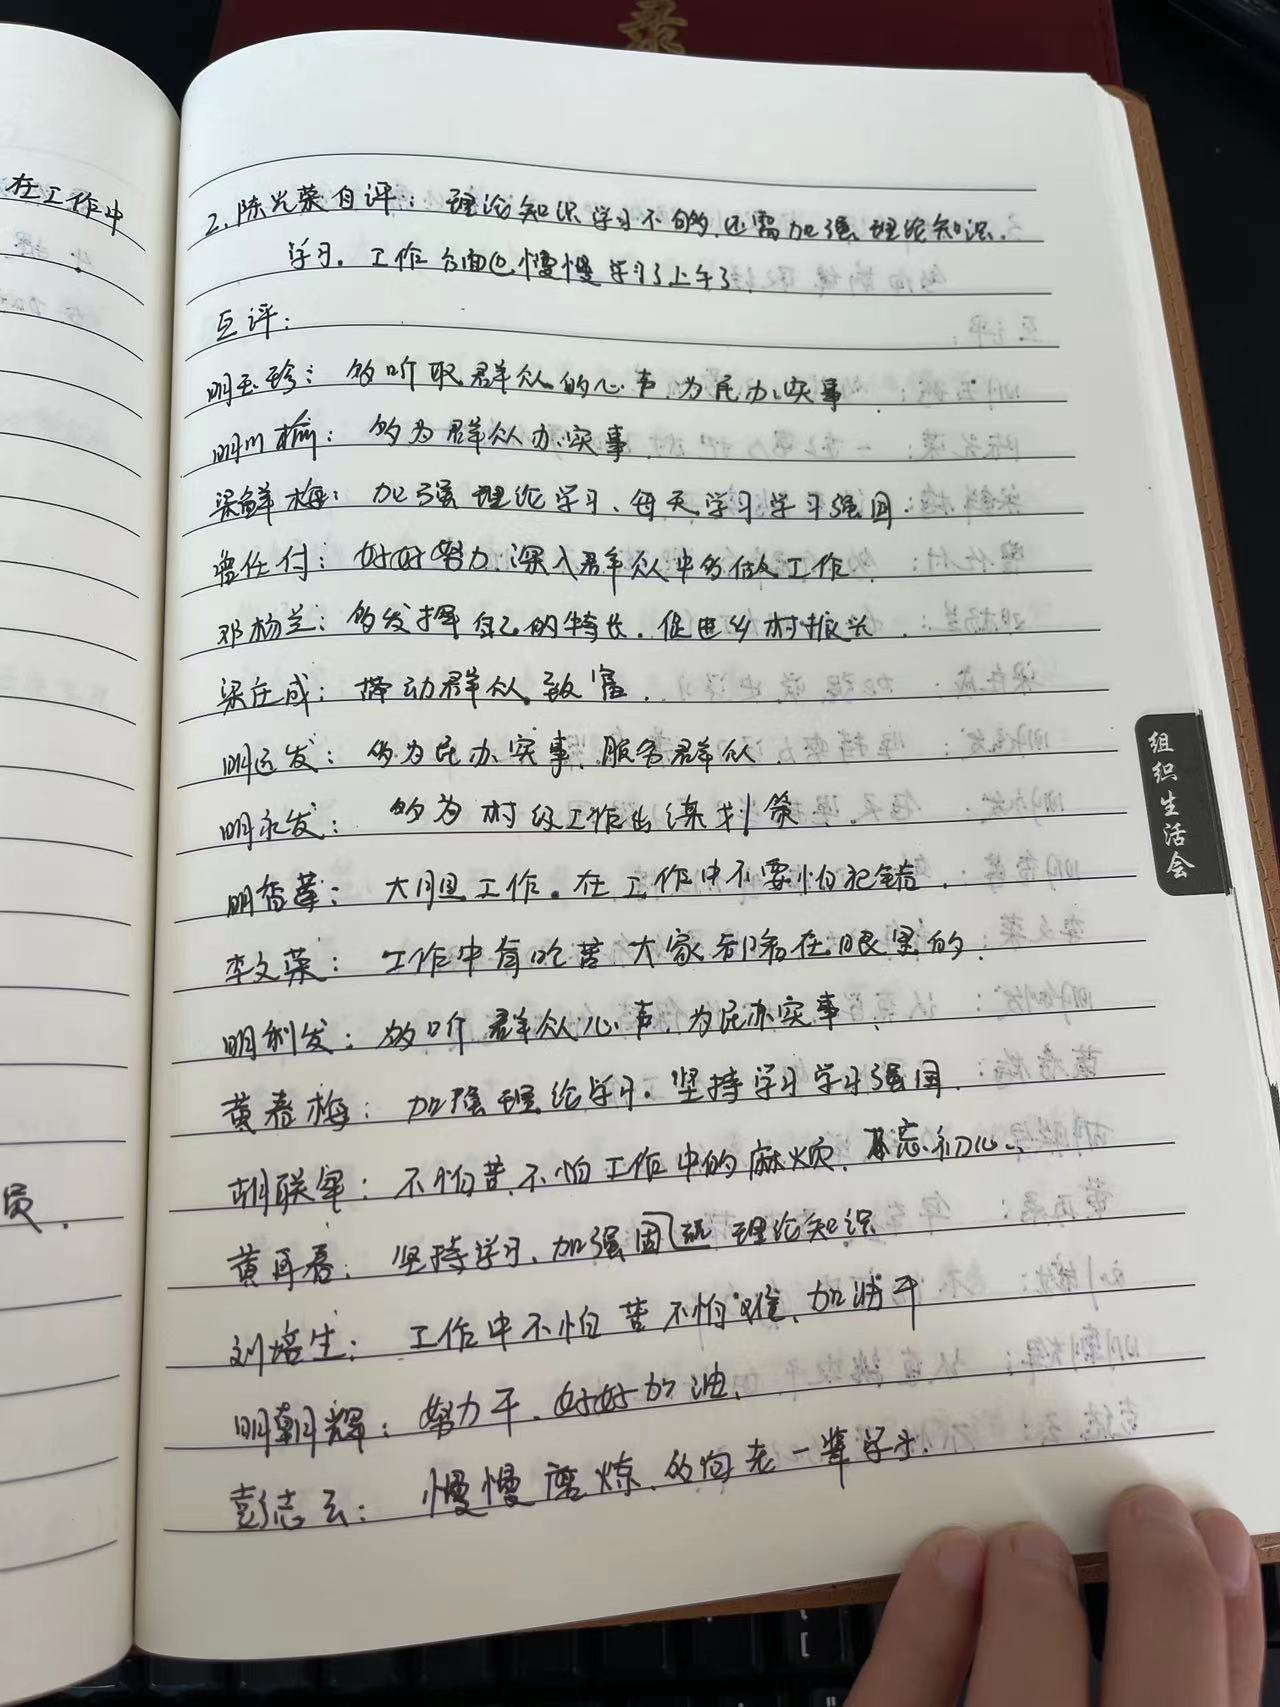 录
在工作中
员.
2.陈光荣自评：理论知识学习不够,还需加强理论知识.
学习。工作方面也慢慢学习了上午了.
互评：
明玉珍：多听取群众的心声,为民办实事
明川榆：多为群众办实事
梁鲜梅：加强理论学习、每天学习学习强国.
曾任付：好好努力.深入群众中多做工作.
邓杨兰：多发挥自己的特长.促进乡村振兴.
梁任成：带动群众致富.
明远发：多为民办实事.服务群众.
明永发：多为村级工作出谋划策
明香莲：大胆工作。在工作中不要怕犯错.
李文菜：工作中有吃苦.大家都看在眼里的.
明利发：多听群众心声.为民办实事.
黄春梅：加强理论学习。坚持学习学习强国.
胡联军：不怕苦.不怕工作中的麻烦.不忘初心.
黄再春：坚持学习.加强固巩理论知识
刘培生：工作中不怕苦不怕难.加油干
明朝辉：努力干.好好加油.
彭志云：慢慢磨炼.多向老一辈学习.
组织生活会